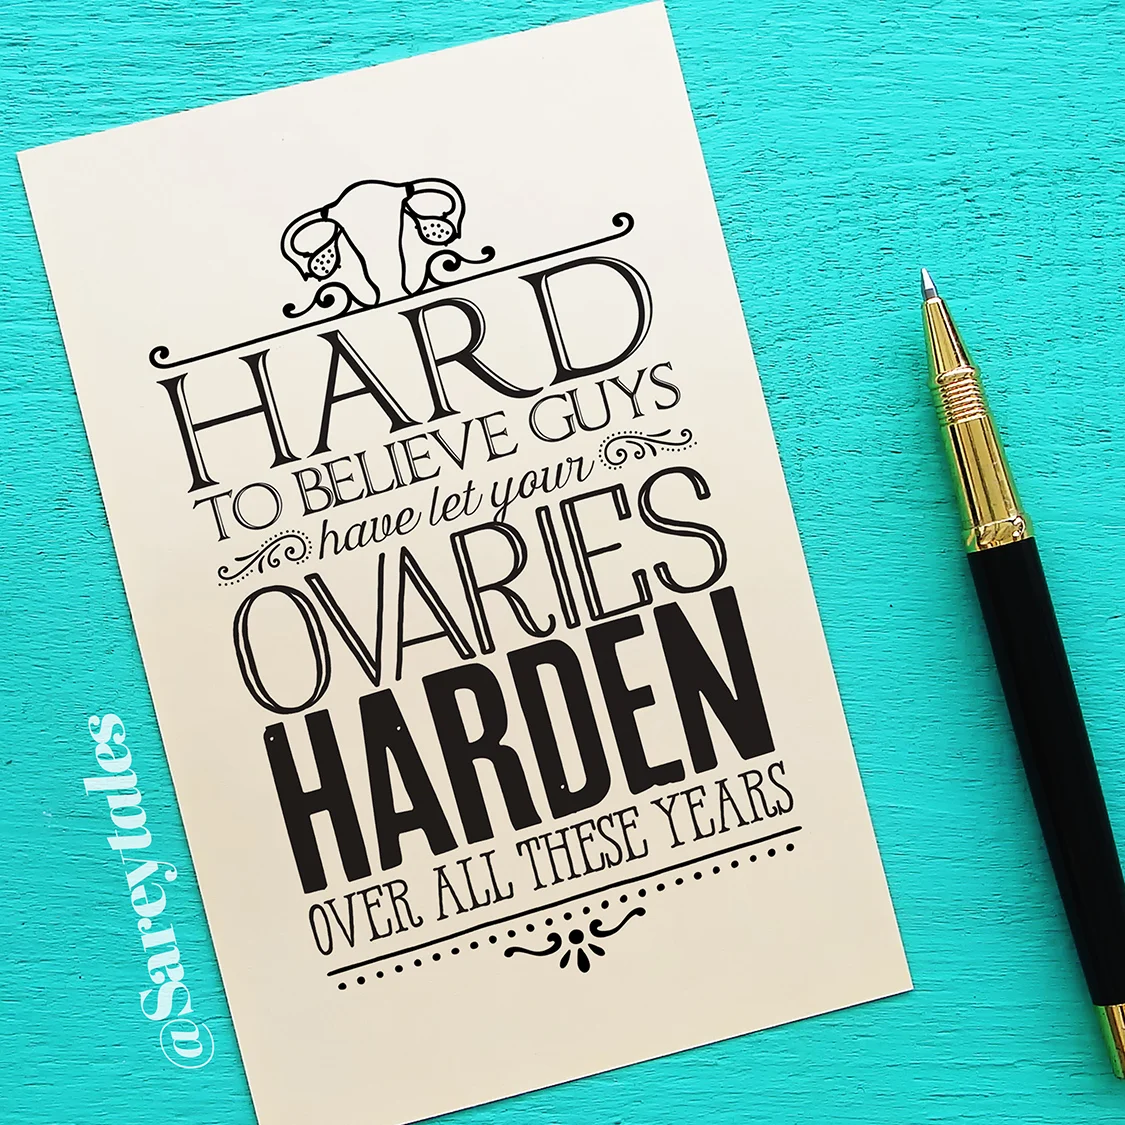 HARD
TO BELIEVE GUYS
have let your
OVARIES
HARDEN
OVER ALL THESE YEARS
@Sareytales